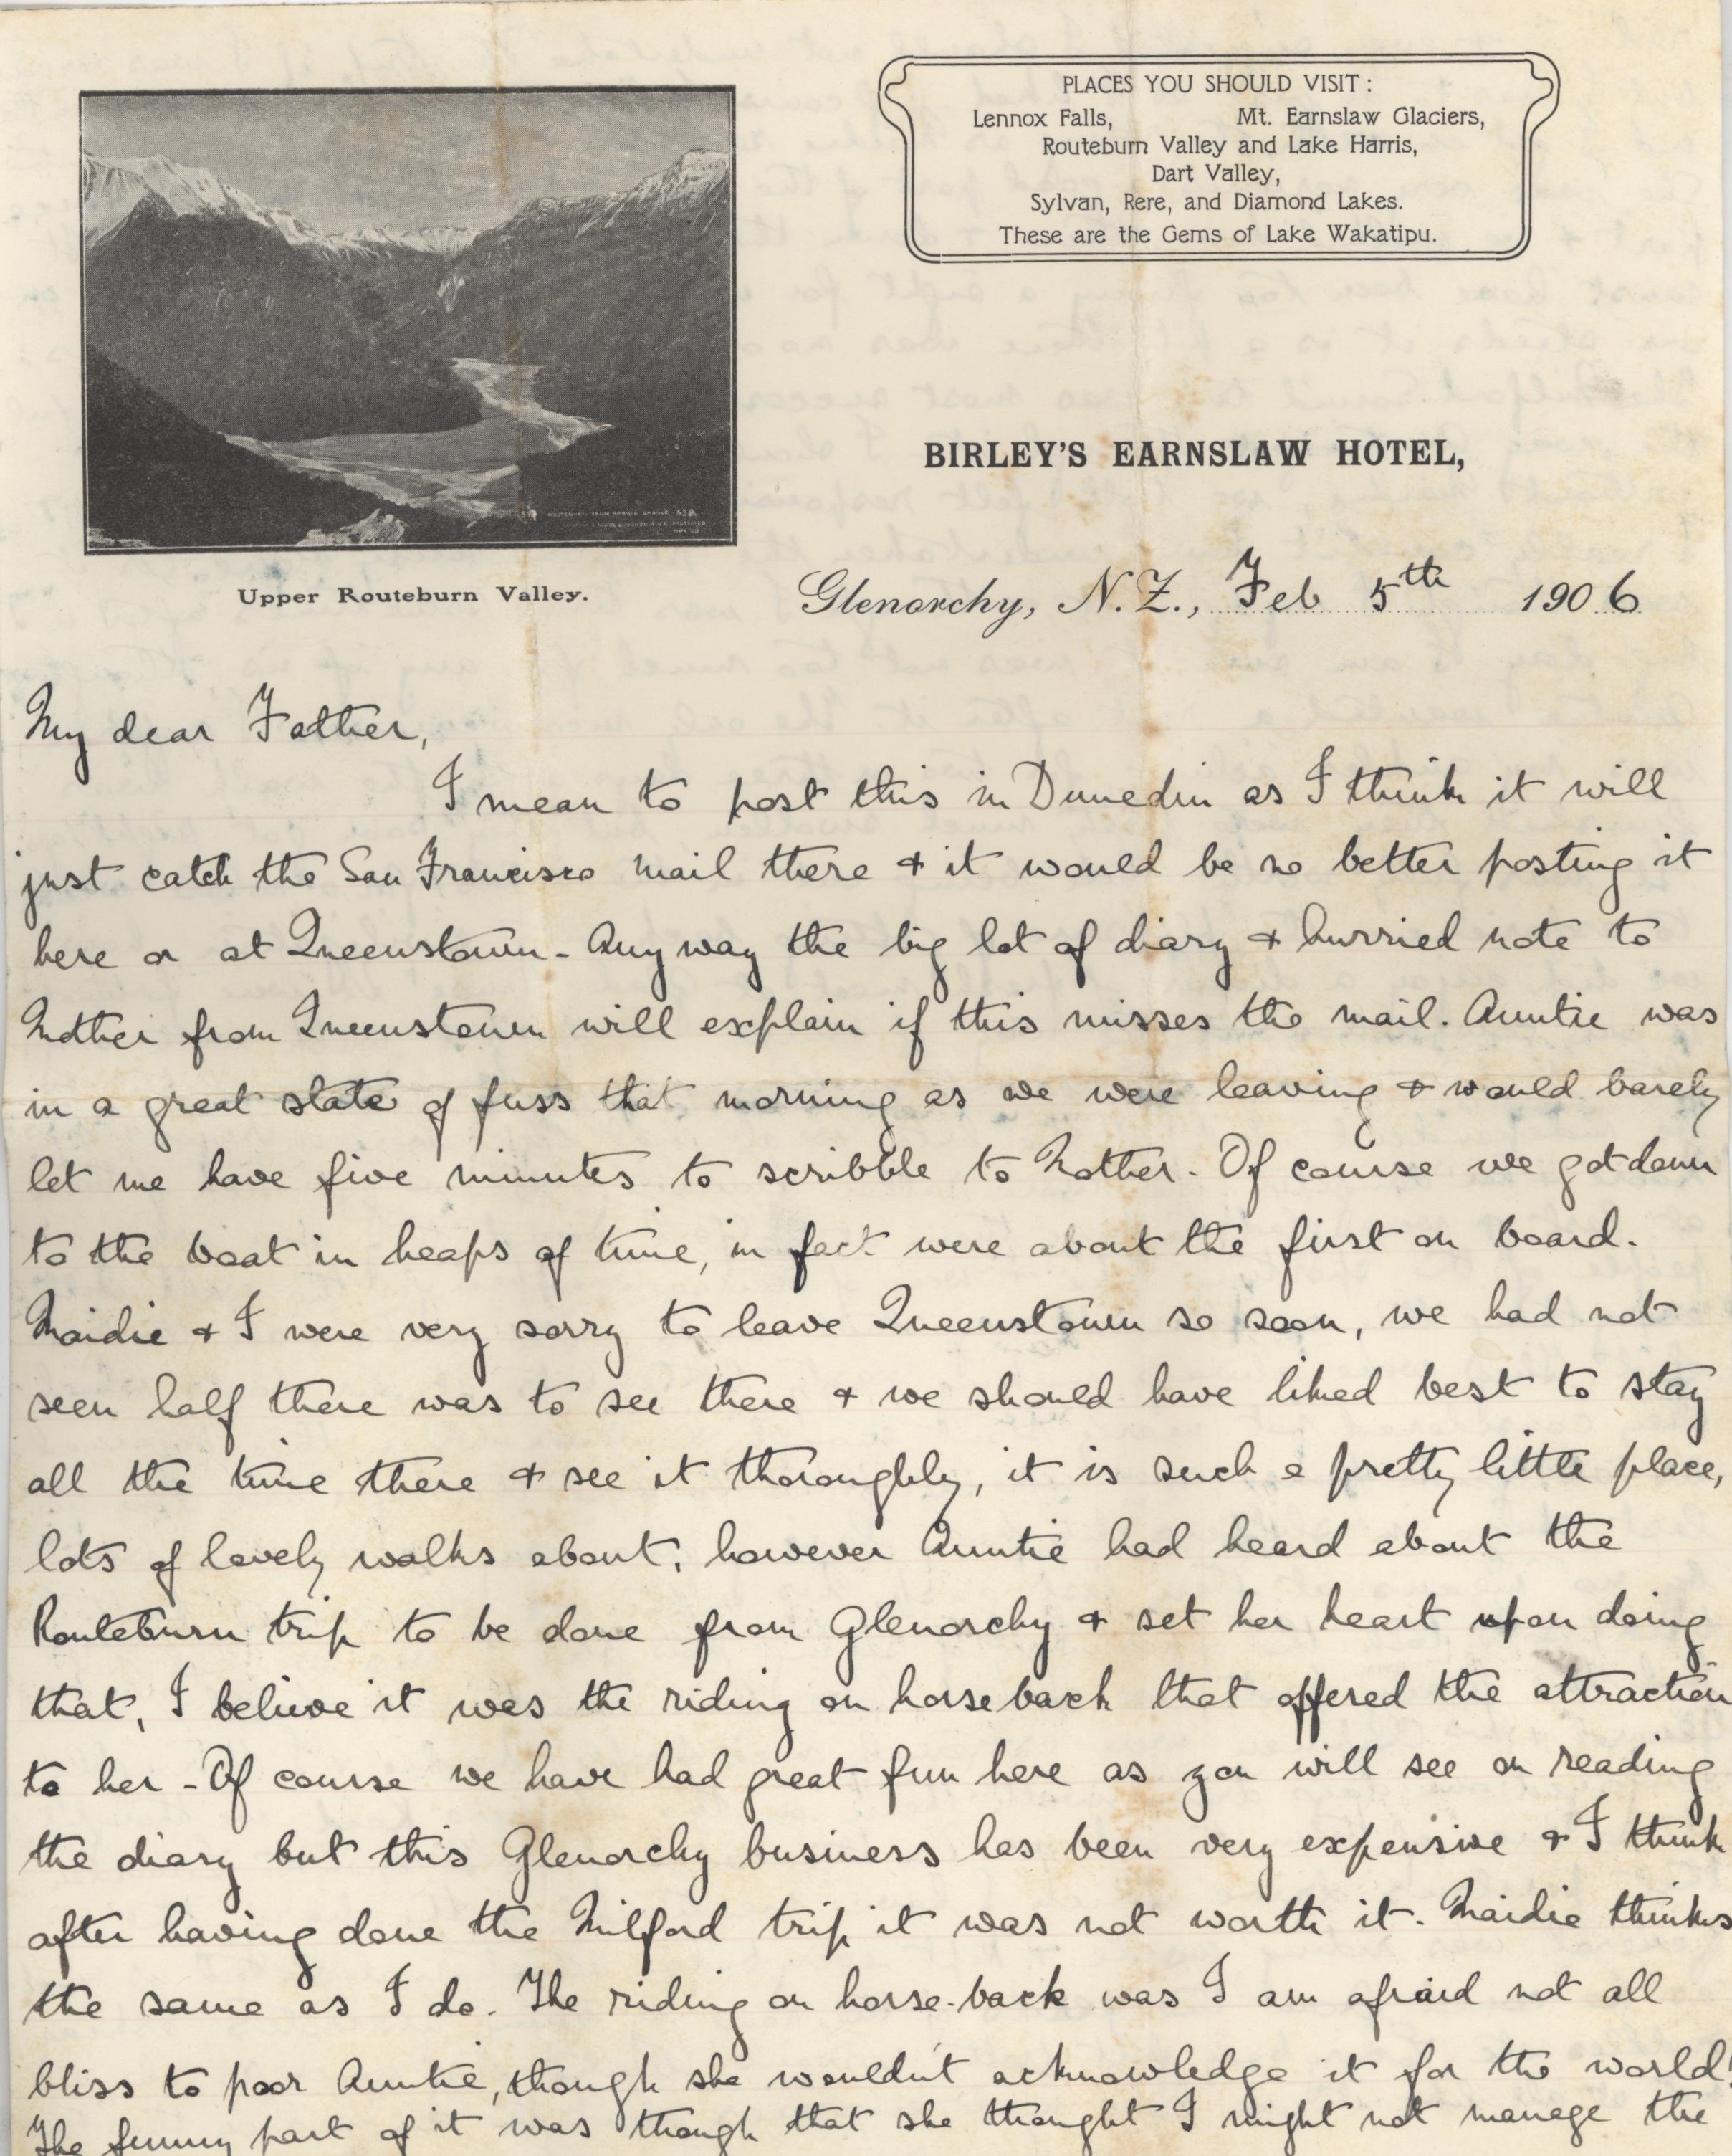 PLACES YOU SHOULD VISIT :
Lennox Falls, Mt. Earnslaw Glaciers,
Routeburn Valley and Lake Harris,
Dart Valley,
Sylvan, Rere, and Diamond Lakes.
These are the Gems of Lake Wakatipu.
BIRLEY'S EARNSLAW HOTEL,
Upper Routeburn Valley.
Glenorchy, N.Z., Feb 5th 1906
My dear Father,
I mean to post this in Dunedin as I think it will
just catch the San Francisco mail there & it would be no better posting it
here or at Queenstown - Any way the big lot of diary & hurried note to
Mother from Queenstown will explain if this misses the mail. Auntie was
in a great state of fuss that morning as we were leaving & would barely
let me have five minutes to scribble to Mother - Of course we got down
to the boat in heaps of time, in fact were about the first on board.
Maidie & I were very sorry to leave Queenstown so soon, we had not
seen half there was to see there & we should have liked best to stay
all the time there & see it thoroughly, it is such a pretty little place,
lots of lovely walks about, however Auntie had heard about the
Routeburn trip to be done from Glenorchy & set her heart upon doing
that, I believe it was the riding on horseback that offered the attraction
to her - Of course we have had great fun here as you will see on reading
the diary but this Glenorchy business has been very expensive & I think
after having done the Milford trip it was not worth it. Maidie thinks
the same as I do. The riding on horse-back was I am afraid not all
bliss to poor Auntie, though she wouldn't acknowledge it for the world!
The funny part of it was though that she thought I might not manage the